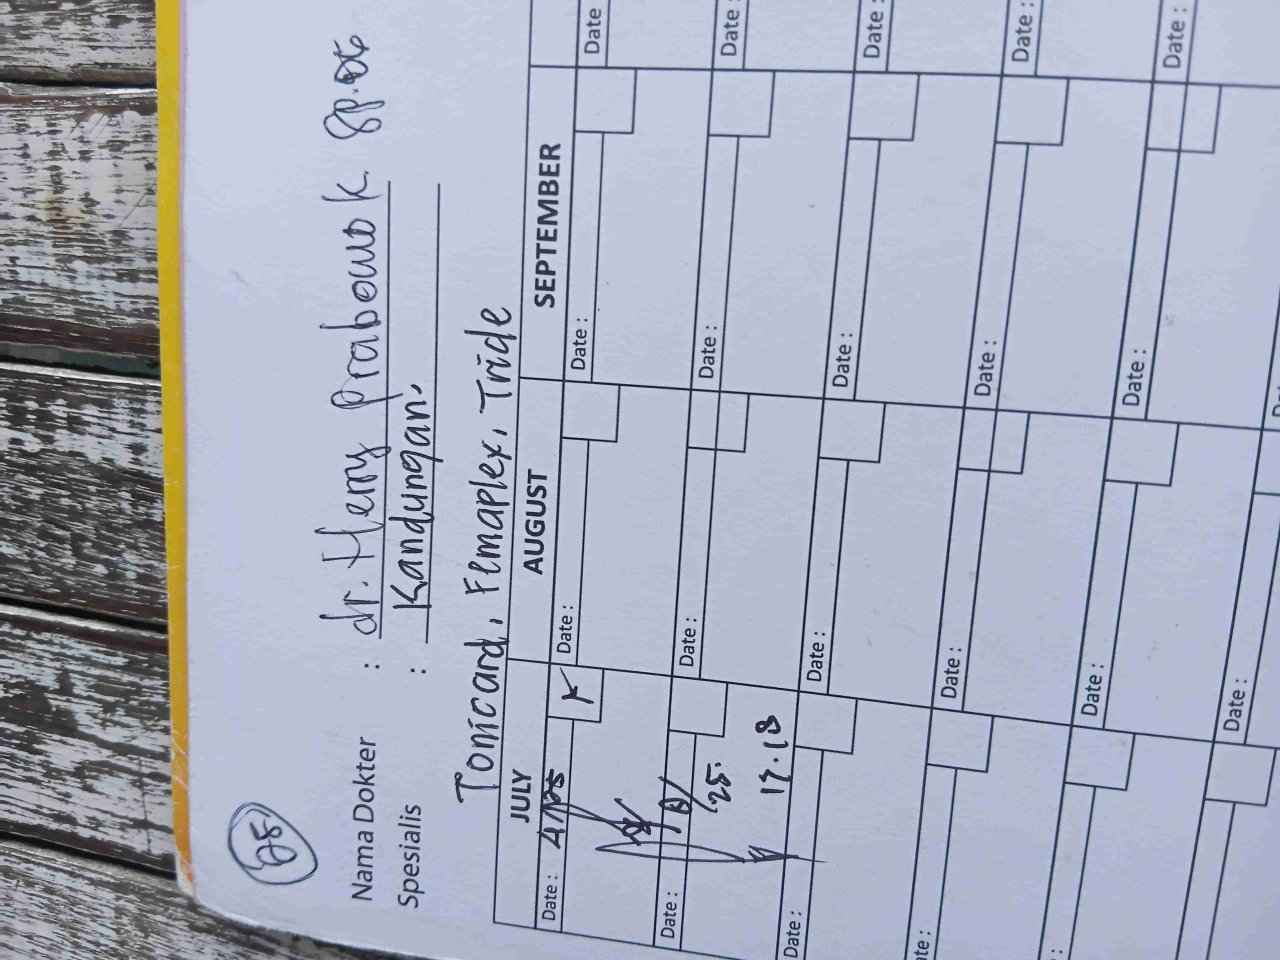 28
Nama Dokter : dr. Henry Prabowo K. Sp.OG
Spesialis : Kandungan.
Tonicard, Femaplex, Tride
JULY AUGUST SEPTEMBER
Date : Date : Date : Date :
Date : Date : Date : Date :
25.
17.18
Date : Date : Date : Date :
Date : Date : Date :
Date : Date : Date :
Date :